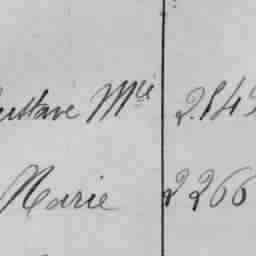 Gustave Mie 2.845
Marie 2266